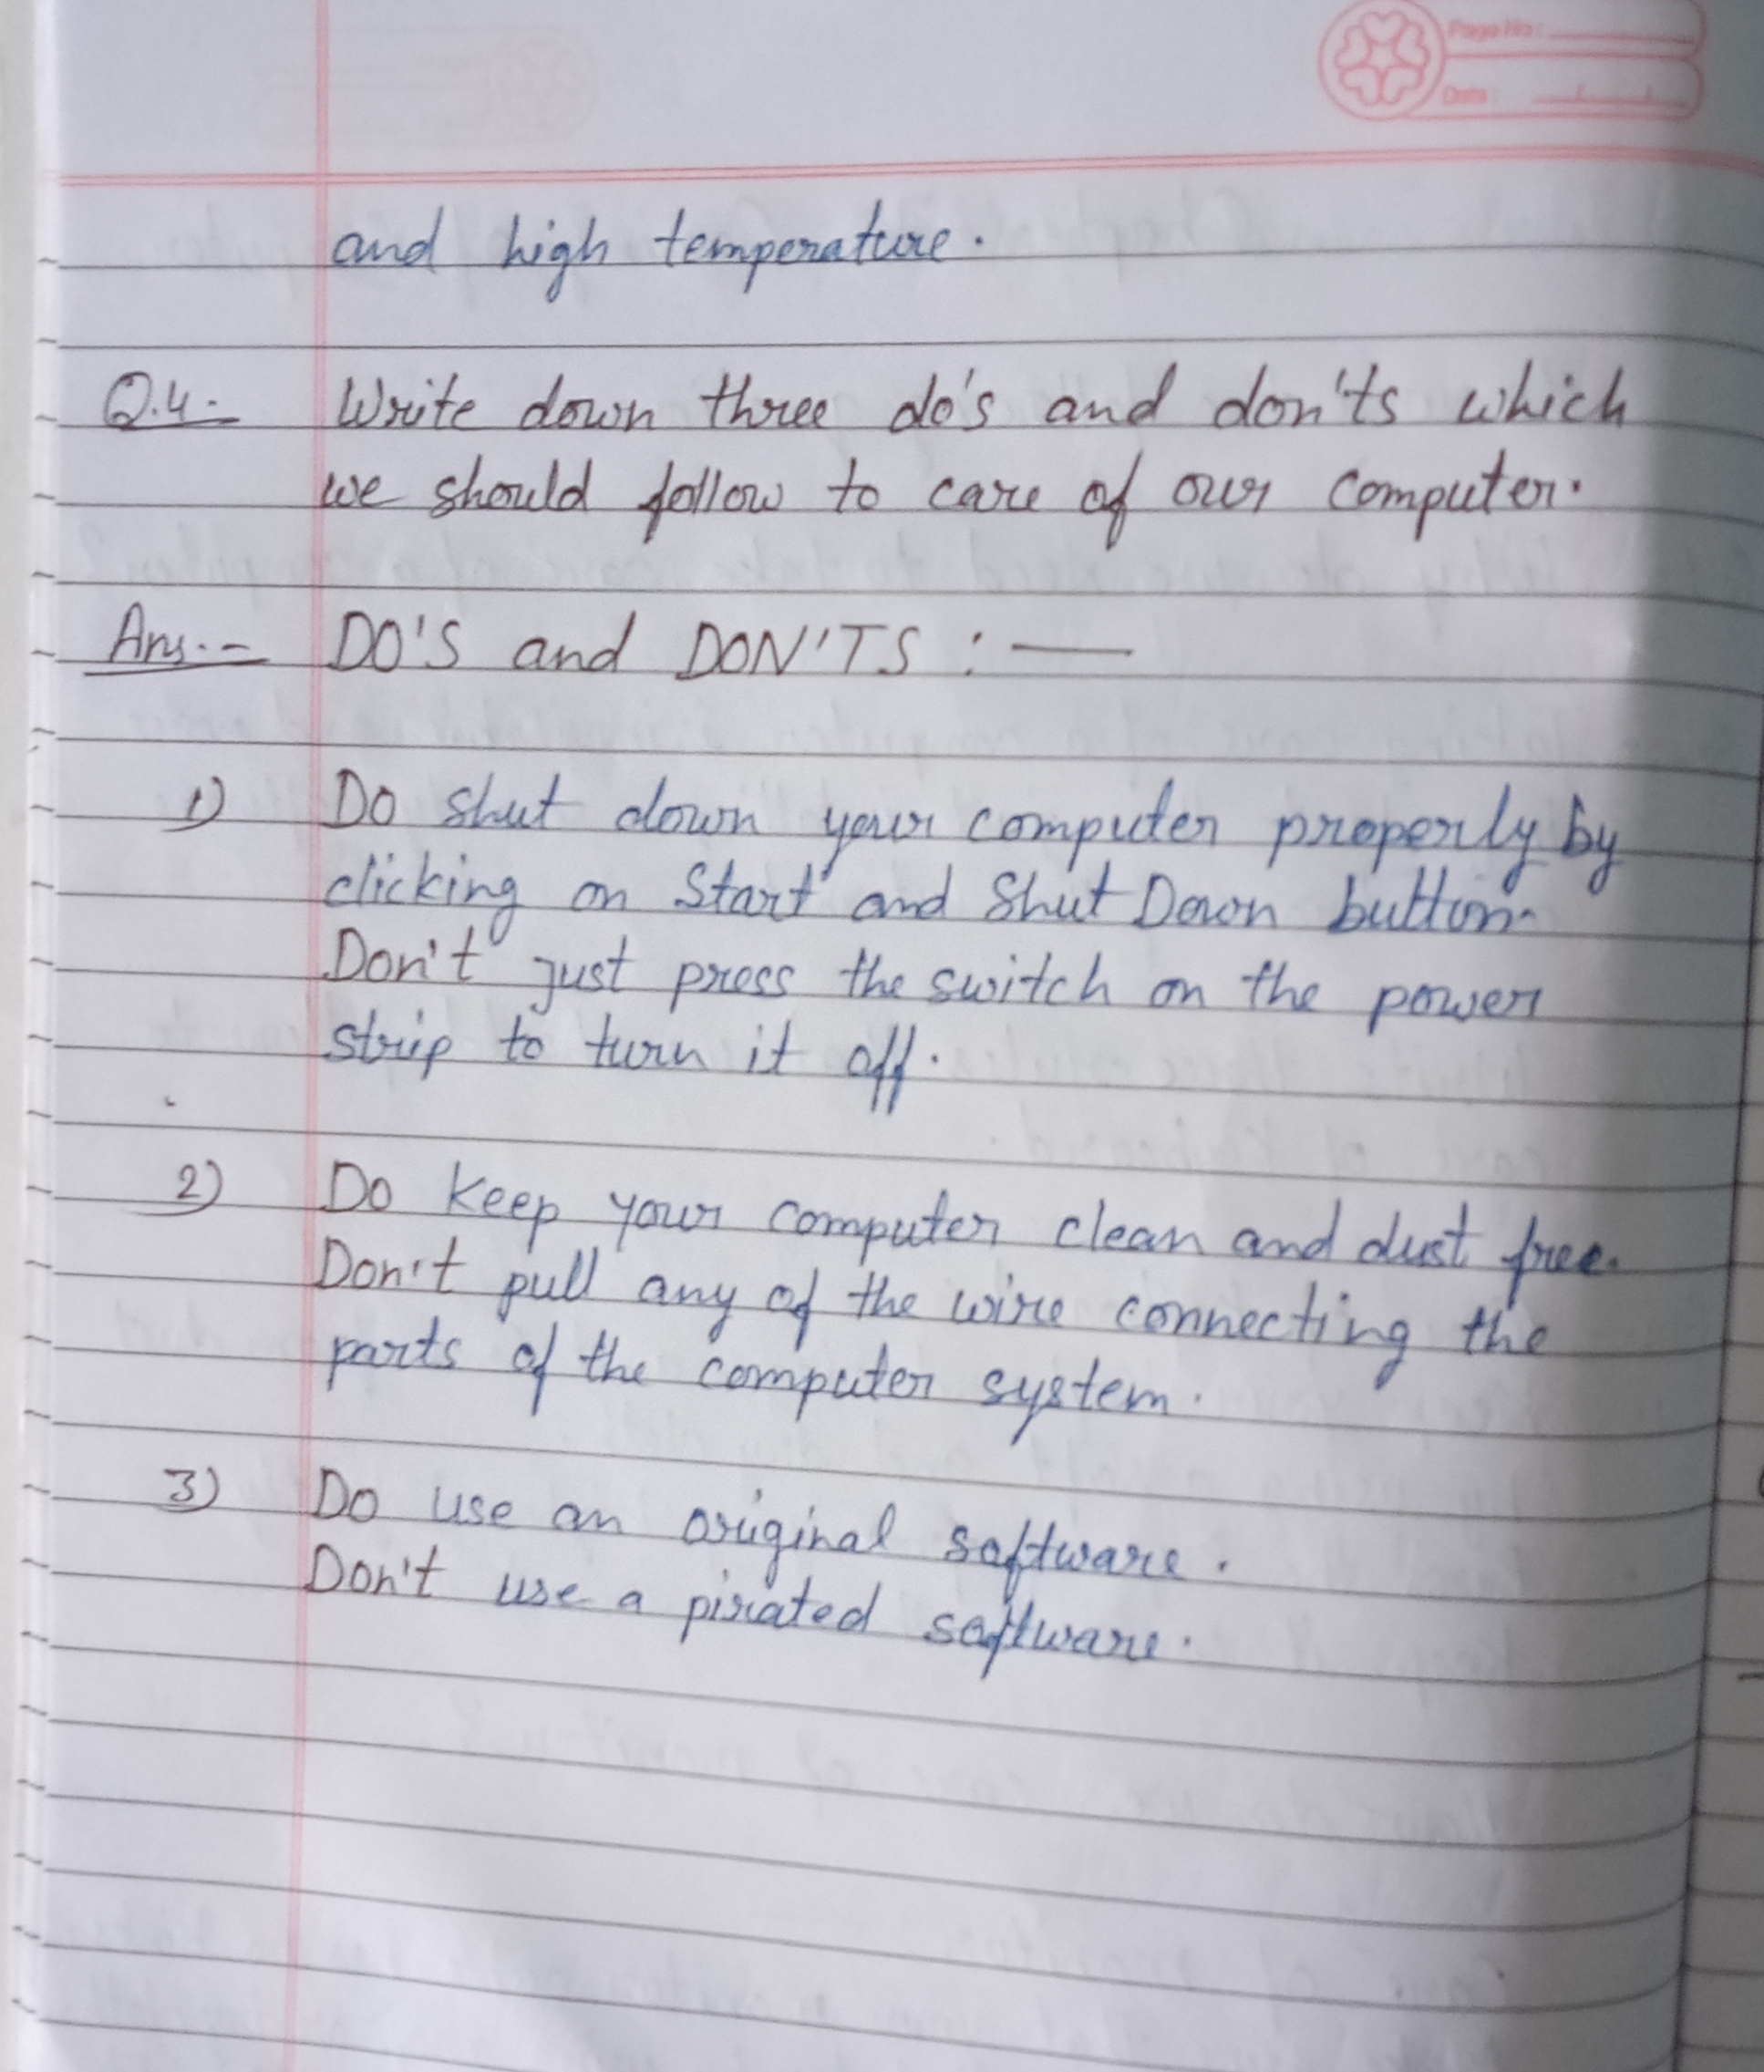 Page No:
Date:
and high temperature.
Q.4.- Write down three do's and don'ts which
we should follow to care of our computer.
Ans.- DO'S and DON'TS : —
1) Do shut down your computer properly by
clicking on Start and Shut Down button.
Don't just press the switch on the power
strip to turn it off.
2) Do keep your computer clean and dust free.
Don't pull any of the wire connecting the
parts of the computer system.
3) Do use an original software.
Don't use a pirated software.